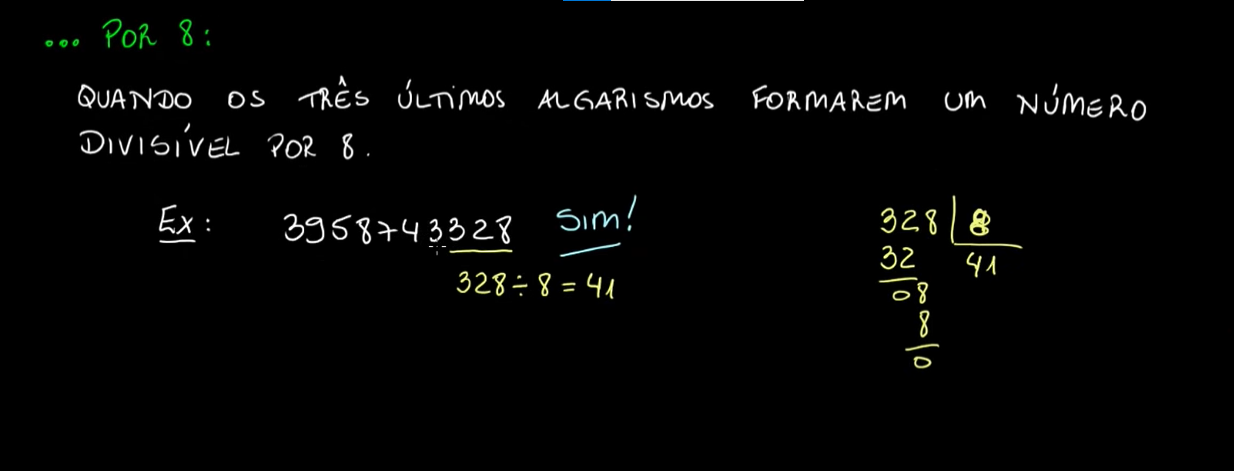 ... POR 8:
QUANDO OS TRÊS ÚLTIMOS ALGARISMOS FORMAREM UM NÚMERO
DIVISÍVEL POR 8.
Ex: 3958743328 SIM!
328 ÷ 8 = 41
328 8
32 41
08
8
0